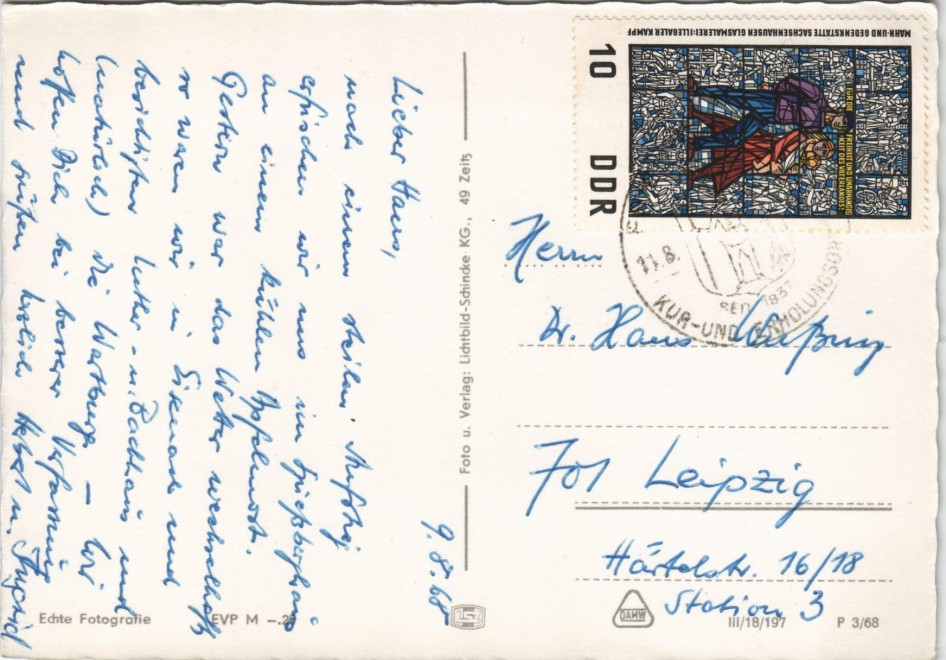 9.8.68
Lieber Hans,
nach einem steilen Aufstieg
erfrischen wir uns im
an einem kühlen Apfelmost.
Gestern war das Wetter wechselhaft
so waren wir in Eisenach und
besichtigten Luther- u. Bachhaus und
(natürlich) die Wartburg – Wir
hoffen Dich bei bester Verfassung
und grüßen herzlich u. Ingrid
Foto u. Verlag: Lichtbild-Schincke KG., 49 Zeitz
MAHN-UND GEDENKSTÄTTE SACHSENHAUSEN GLASMALEREI: ILLEGALER KAMPF
10 DDR
FÜR DIE
FREIHEIT UND UNABHÄNGIG
KEIT DES VATERLANDES
11.8.
SEIT 1837
KUR-UND ERHOLUNGSORT
Herrn
Dr. Hans
701 Leipzig
Härtelstr. 16/18
Station 3
Echte Fotografie
EVP M -.25
DAMW
III/18/197
P 3/68